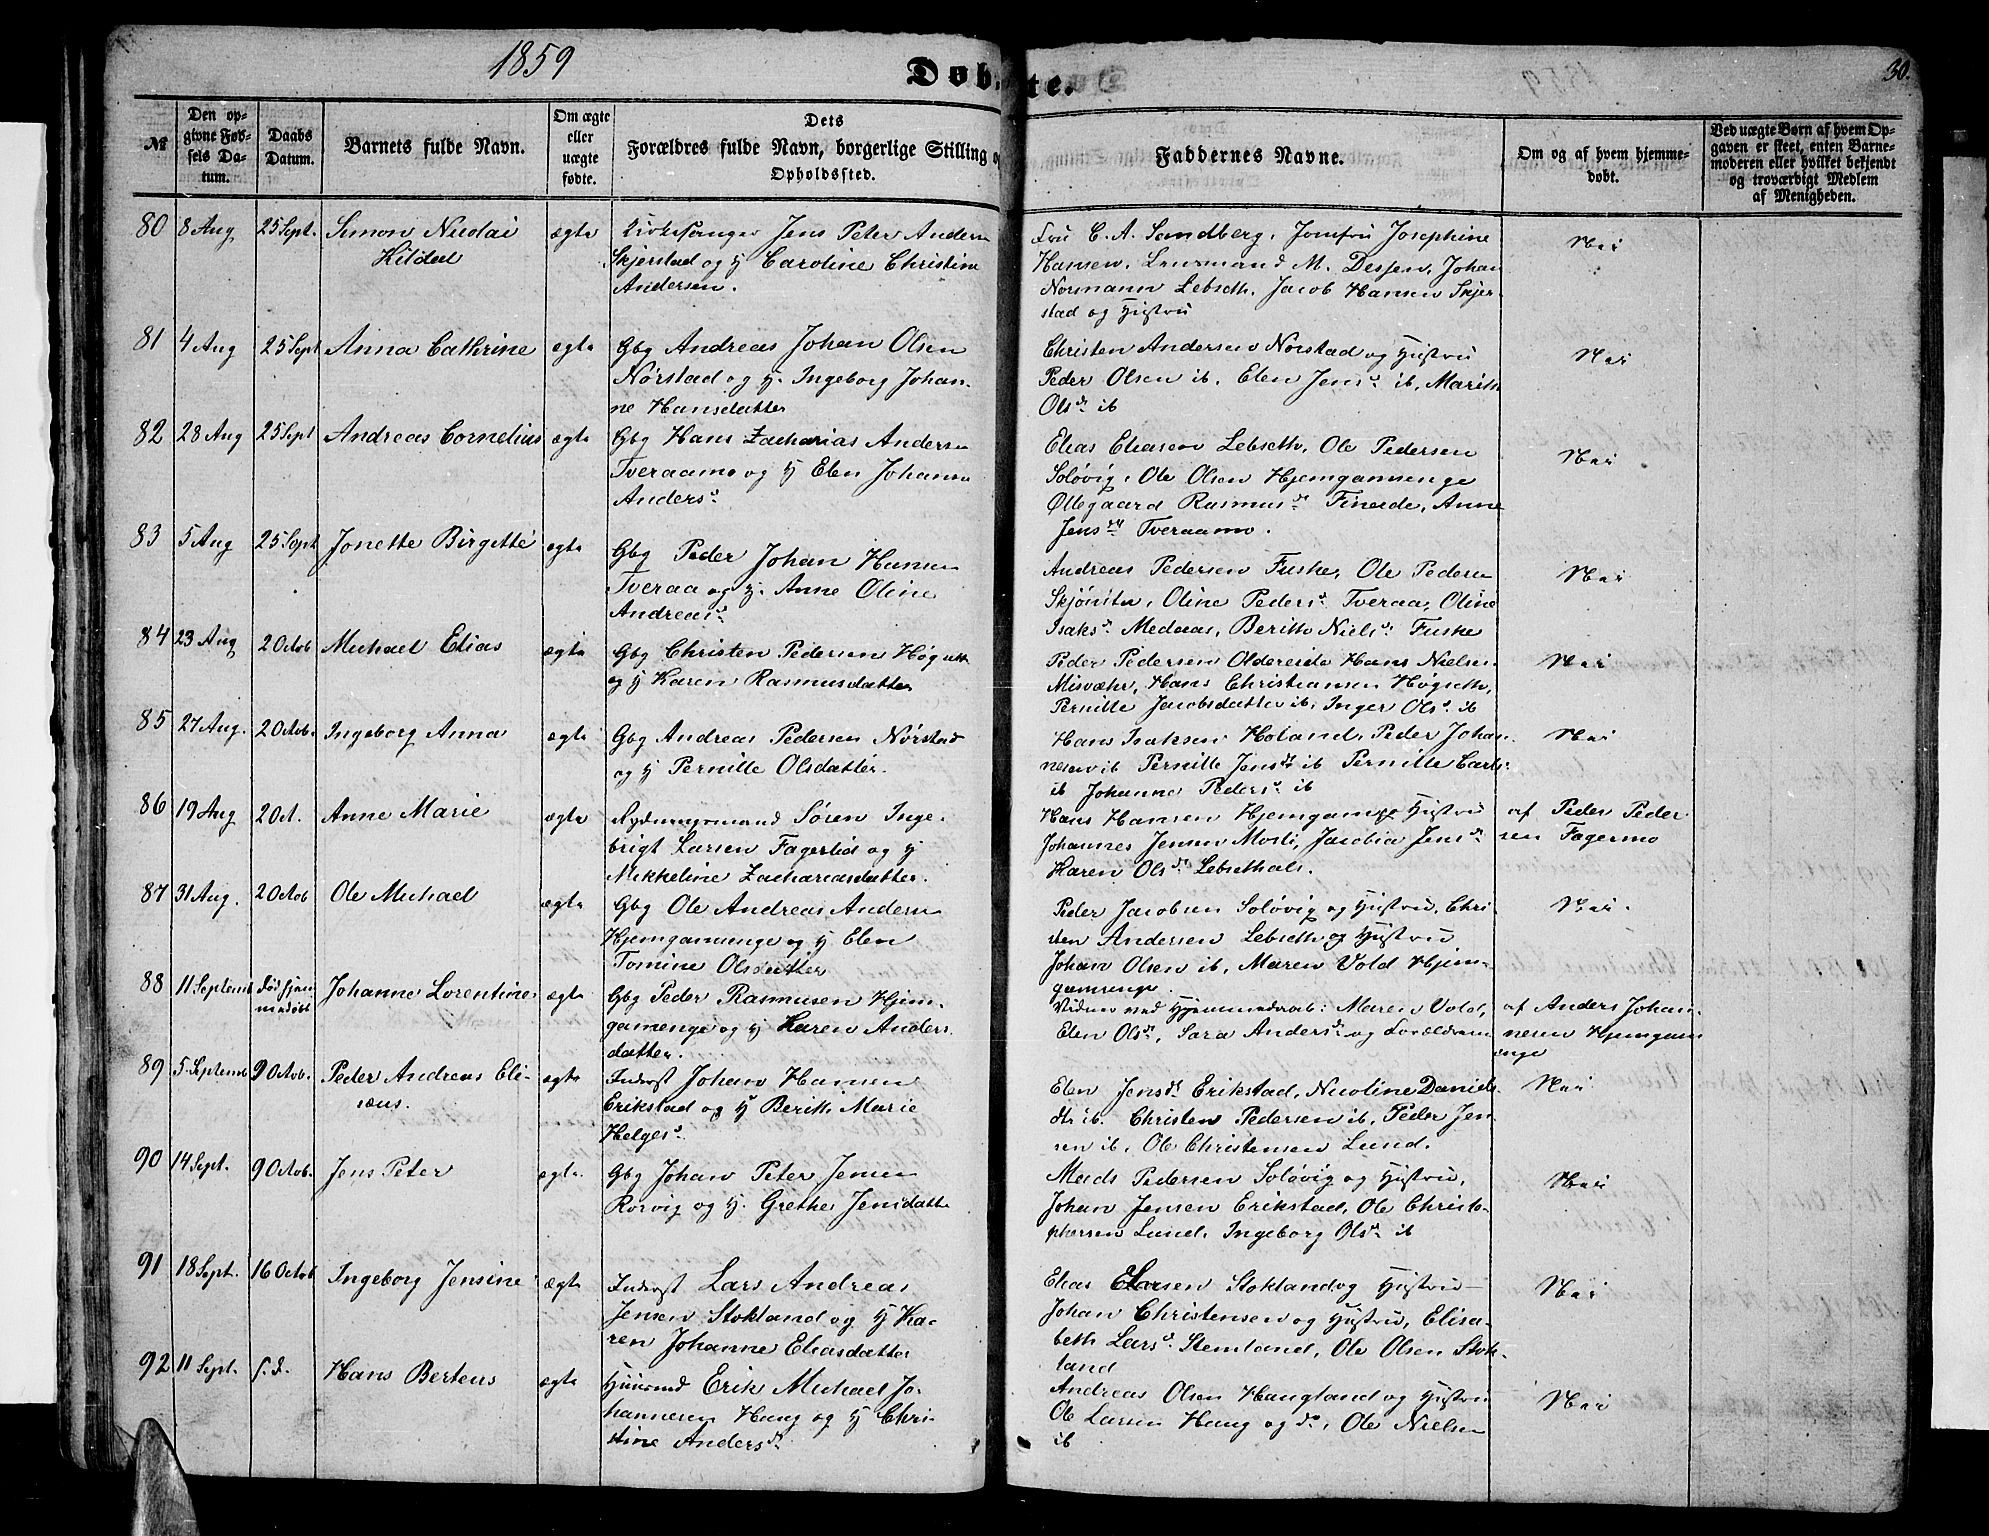 1859
Døbte.
30.
№
Den op-
givne Fød-
sels Da-
tum.
Daabs
Datum.
Barnets fulde Navn.
Om ægte
eller
uægte
fødte.
Dets
Forældres fulde Navn, borgerlige Stilling og
Opholdssted.
Faddernes Navne.
Om og af hvem hjemme-
døbt.
Ved uægte Børn af hvem Op-
gaven er skeet, enten Barne-
moderen eller hvilket bekjendt
og troværdigt Medlem
af Menigheden.
80 8 Aug 25 Sept. Simon Nicolai ægte Kirkesanger Jens Peter Andersen
Hildal Skjerstad og H Caroline Christine
Andersen.
Fru C. A. Sandberg, Jomfru Josephine
Hansen, Lensmand M. Desjen, Johan
Normann Lebseth, Jacob Hansen Skjer-
stad og Hustru
Nei
81 4 Aug 25 Sept Anna Cathrine ægte Gbg Andreas Johan Olsen
Nørstad og H. Ingeborg Johan-
ne Hansdatter
Christen Andersen Nørstad og Hustru
Peder Olsen ib, Elen Jensd ib, Marith
Olsdr ib
Nei
82 28 Aug 25 Sept Andreas Cornelius ægte Gbg Hans Zacharias Andersen
Tveraamo og H Elen Johanna
Andersd
Elias Eliasen Lebseth, Ole Pedersen
Soløvig, Ole Olsen Hjemgamsenge
Øllegaard Rasmusdr Fineide, Anne
Jensdr Tveraamo.
Nei
83 5 Aug 25 Sept Jonette Birgitte ægte Gbg Peder Johan Hansen
Tveraa og H. Anne Oline
Andreasd
Andreas Pedersen Fuske, Ole Pedersen
Skjønsten, Oline Pedersd Tveraa, Oline
Isaksd Medaas, Berith Nielsd Fuske
Nei
84 23 Aug 2 Octob Michael Elias ægte Gbg Christen Pedersen Høgseth
og H Karen Rasmusdatter
Peder Pedersen Oldereide Hans Nielsen
Misvæhr, Hans Christiansen Høgseth,
Pernille Jacobsdatter ib, Inger Olsd ib
Nei
85 27 Aug. 2 Octob. Ingeborg Anna ægte Gbg Andreas Pedersen Nørstad
og H Pernille Olsdatter.
Hans Isaksen Høland, Peder Johan-
nesen ib Pernille Jensdr ib Pernille Carls-
ib Johanna Pedersd ib
Nei
86 19 Aug 2 Oct. Anne Marie ægte Rydningsmand Søren Inge-
brigt Larsen Fagerlid og H
Mikkeline Zachariasdatter.
Hans Hansen Hjemgam og Hustru
Johannes Jensen Morli, Jacobia Jensdr
Karen Olsdr Lebsethals.
af Peder Peder
sen Fagermo
87 31 Aug. 2 Octob Ole Michael ægte Gbg Ole Andreas Andersen
Hjemgamsenge og H Elen
Tomine Olsdatter
Peder Jacobsen Soløvig og Hustru, Chri-
sten Andersen Lebseth og Hustru,
Johan Olsen ib, Maren Vold Hjem-
gamsenge.
Nei.
88 11 Septemb død hjem-
medøbt Johanne Lorentine ægte Gbg Peder Rasmusen Hjem-
gamenge og H Karen Anders
datter.
Vidner ved Hjemmedaab: Maren Vold,
Elen Olsdr, Sara Andersdr og Forældrene
af Anders Johan-
nesen Hjemgam
enge
89 5 Septemb 9 Octob. Peder Andreas Eli-
sæus. ægte Inderst Johan Hansen
Erikstad og H Berith Marie
Helgesd.
Elen Jensdr Erikstad, Nicoline Daniels-
dtr ib. Christen Pedersen ib, Peder Jen-
sen ib, Ole Christensen Lund.
Nei
90 14 Sept. 9 Octob. Jens Peter ægte. Gbg Johan Peter Jensen
Rorvig og H. Grethe Jensdatter
Mads Pedersen Soløvig og Hustru,
Johan Jensen Erikstad, Ole Christo-
phersen Lund, Ingeborg Olsdr ib
Nei
91 18 Sept. 16 Octob Ingeborg Jensine ægte Inderst Lars Andreas
Jensen Stokland og H Ka-
ren Johanne Eliasdatter
Elias Larsen Stokland og Hustru
Johan Christensen og Hustru, Elisa-
beth Larsd Stemland, Ole Olsen Stok-
land
Nei
92 11 Sept. s. D. Hans Berteus ægte Huusmd Erik Michael Jo-
hannesen Haug og H Chri-
stine Andersdr
Andreas Olsen Haugland og Hustru
Ole Larsen Haug og do, Ole Nielsen
ib
Nei